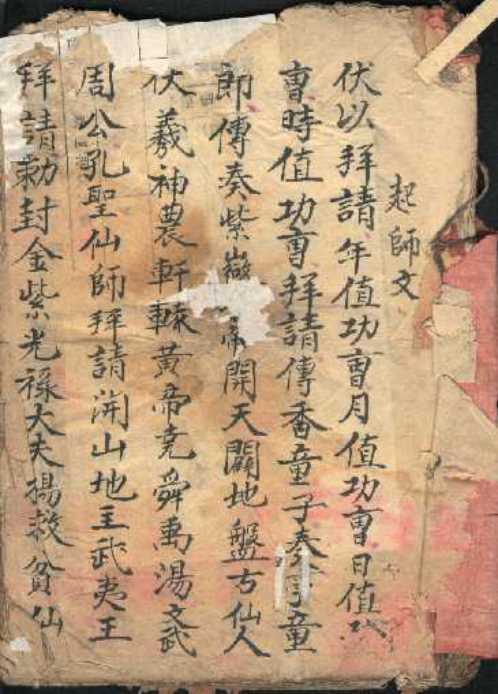 起師文
伏以拜請年值功曹月值功曹日值功
曹時值功曹拜請傳香童子奏事童
郎傳奏紫微帝開天闢地盤古仙人
伏羲神農軒轅黃帝堯舜禹湯文武
周公孔聖仙師拜請開山地主武夷王
拜請勅封金紫光祿大夫楊救貧仙